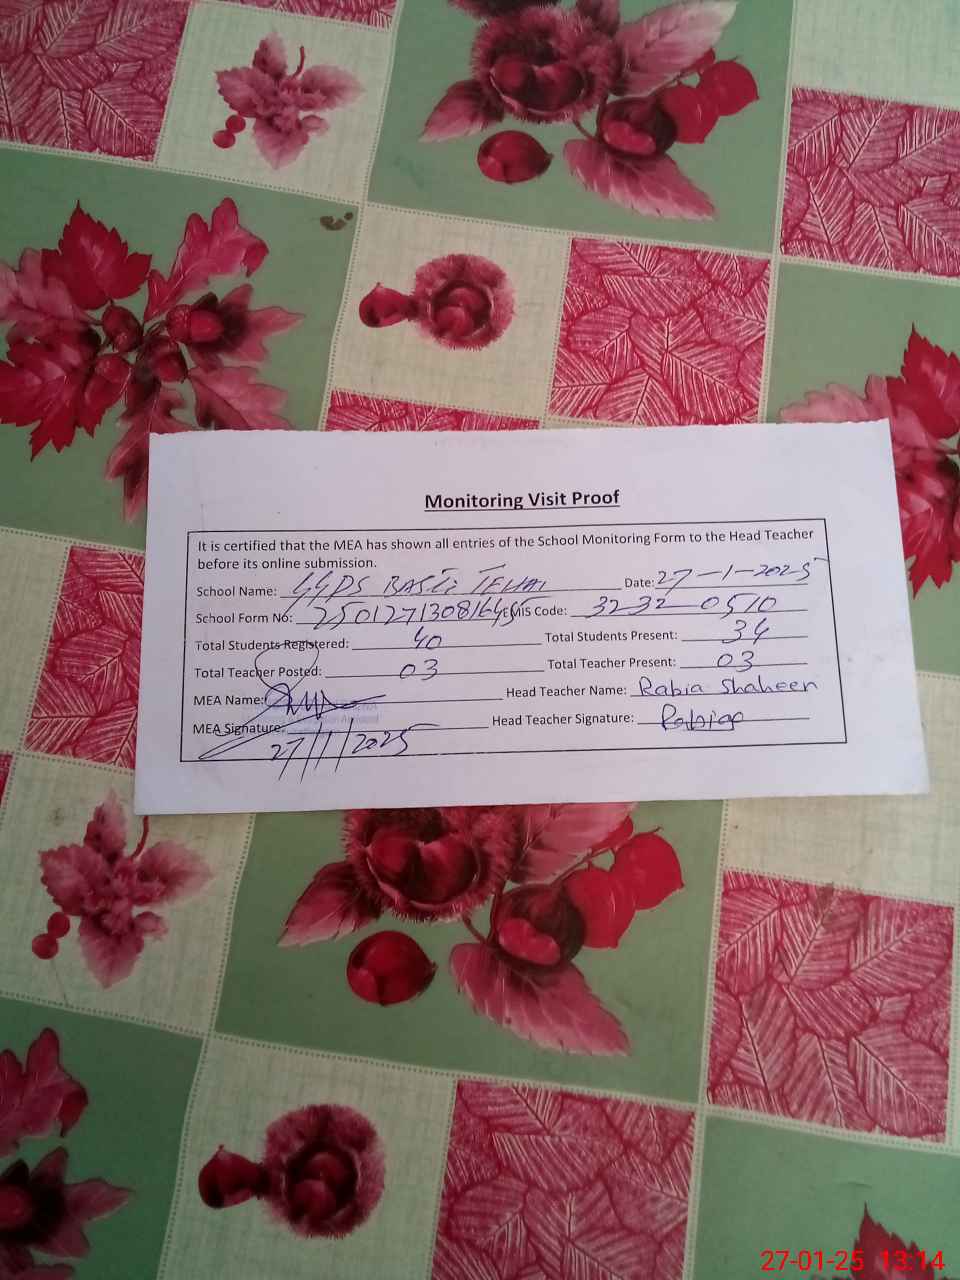 Monitoring Visit Proof
It is certified that the MEA has shown all entries of the School Monitoring Form to the Head Teacher
before its online submission.
School Name: GGPS BASTI Date: 27-1-2025
School Form No: EMIS Code: 3232 0510
Total Students Registered: 40 Total Students Present: 34
Total Teacher Posted: 03 Total Teacher Present: 03
MEA Name: Head Teacher Name: Rabia Shaheen
MEA Signature: Head Teacher Signature:
27/1/2025
27-01-25 13:14